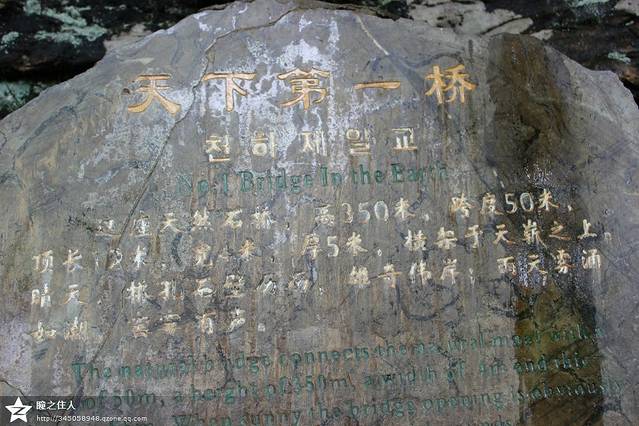 天下第一桥
천하제일교
No.1 Bridge In the Earth
这座天然石桥，高350米，跨度50米，
顶长 米，宽 米，厚5米，横架于天堑之上，
晴天， 石壁 ，雄奇伟岸；雨天雾涌
如潮， 有声。
The natural bridge connects the natural moat with a
of 50m, a height of 350m, a width of 4m and thic
When sunny the bridge opening is obviously
瞳之住人
http://345058948.qzone.qq.com